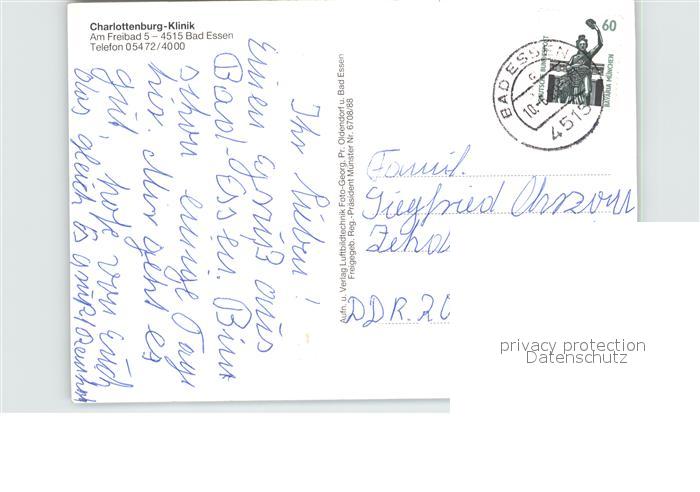 Charlottenburg-Klinik
Am Freibad 5 – 4515 Bad Essen
Telefon 05472/4000
Ihr Lieben!
Einen Gruß aus
Bad-Essen. Bin
schon einige Tage
hier. Mir geht es
gut, hofe von Euch
das gleich. Es grüßt
Aufn. u. Verlag Luftbildtechnik Foto-Georg, Pr. Oldendorf u. Bad Essen
Freigegeb. Reg.-Präsident Münster Nr. 6708/88
60
DEUTSCHE BUNDESPOST
BAVARIA MÜNCHEN
BAD ESSEN
4515
Famil.
Siegfried
DDR. 20
privacy protection
Datenschutz